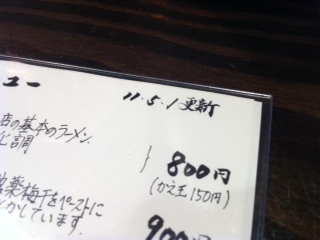 ュー
11.5.1 更新
店の基本のラーメン.
調
800円
(かえ玉150円)
梅干をペーストに
かしています.
900円